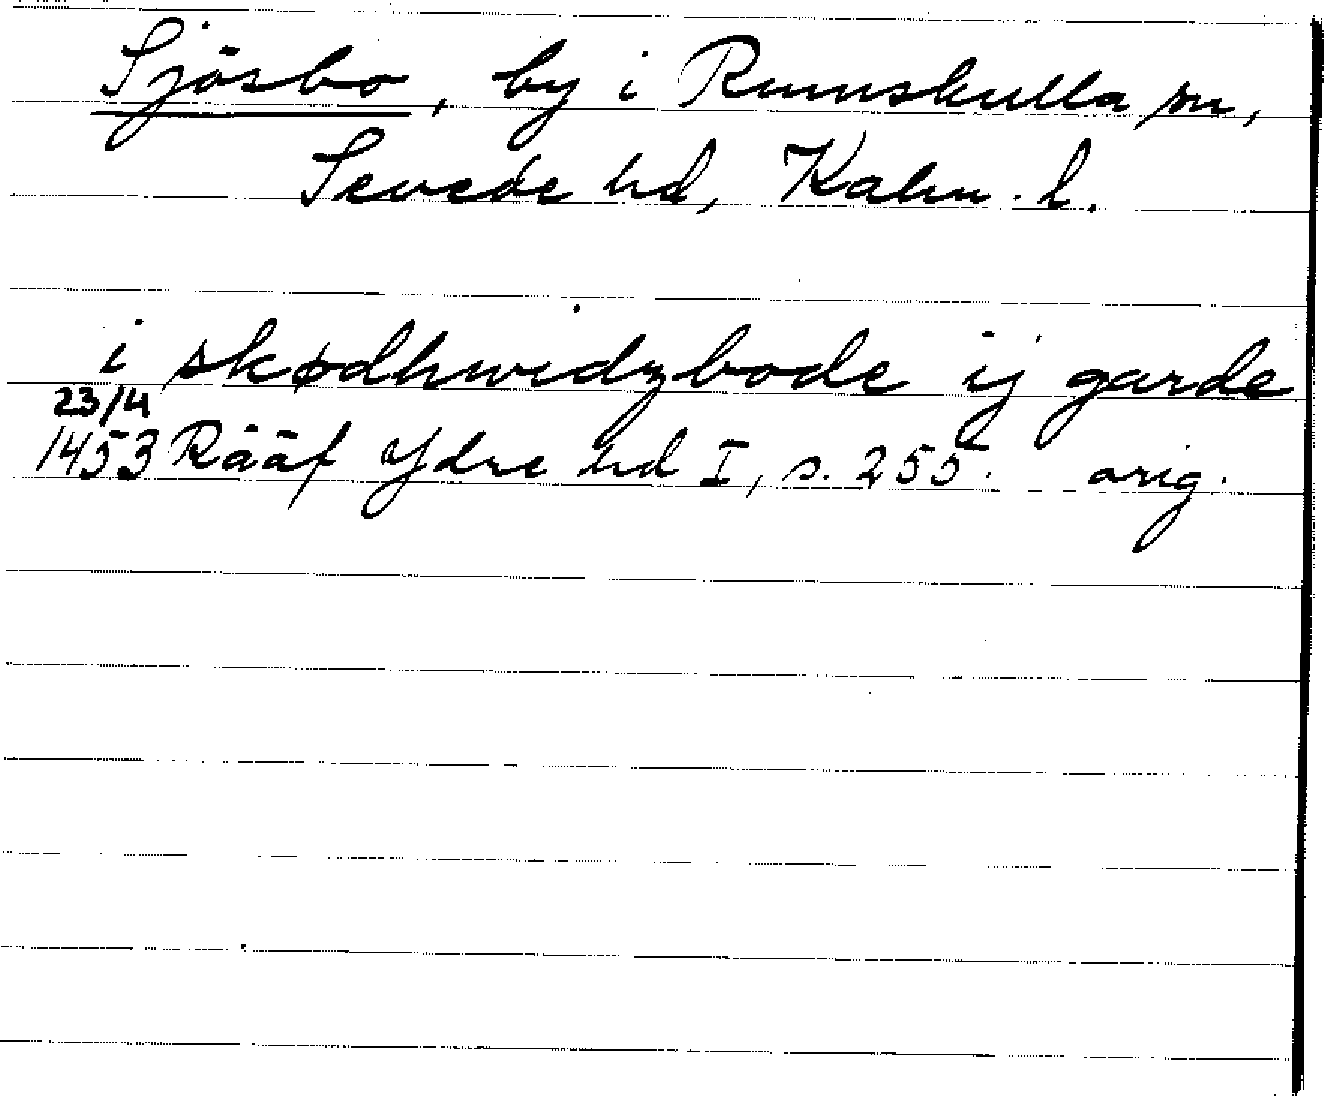 Sjösbo, by i Rumskulla sn,
Sevede hd, Kalm. l.
i skødhwidzbode ij garde
23/4
1453 Rääf Ydre hd I, s. 255. orig.